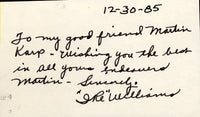 12-30-85
To my good friend Martin
Karp - Wishing you the best
in all yours endeavors
Martin - Sincerely,
"Ike" Williams